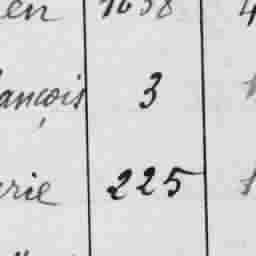 en 1638
ançois 3
rie 225